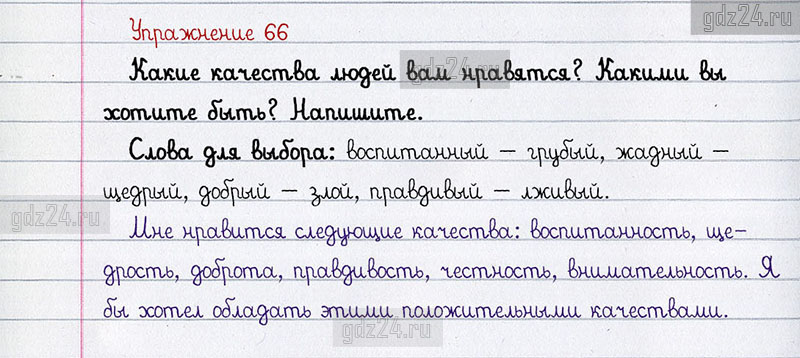 gdz24.ru
Упражнение 66
Какие качества людей вам нравятся? Какими вы
gdz24.ru
хотите быть? Напишите.
gdz24.ru
Слова для выбора: воспитанный – грубый, жадный –
щедрый, добрый – злой, правдивый – лживый.
gdz24.ru
Мне нравится следующие качества: воспитанность, ще-
дрость, доброта, правдивость, честность, внимательность. Я
бы хотел обладать этими положительными качествами.
gdz24.ru